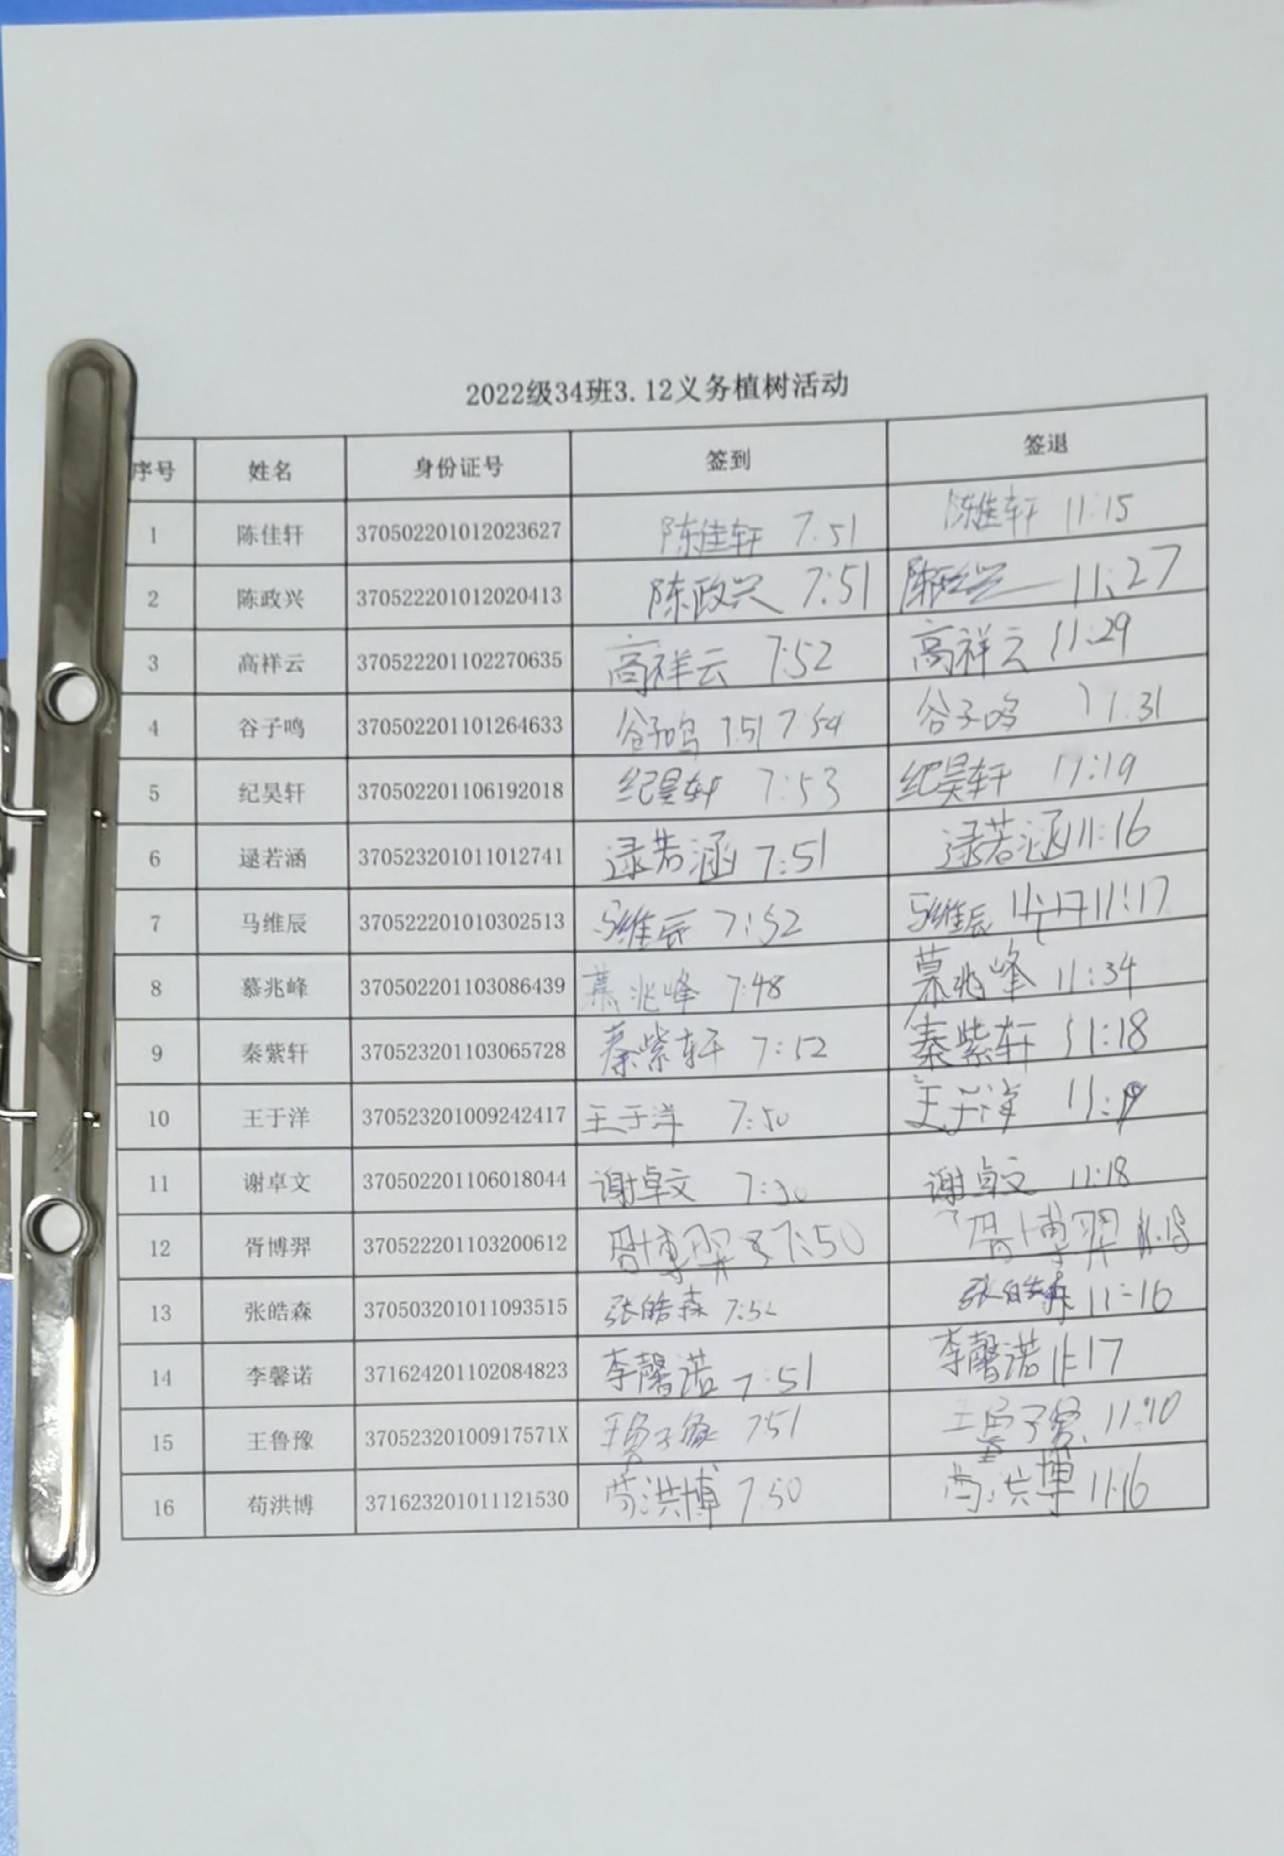 2022级34班3.12义务植树活动
序号 姓名 身份证号 签到 签退
1 陈佳轩 370502201012023627 陈佳轩 7:51 陈佳轩 11:15
2 陈政兴 370522201012020413 陈政兴 7:51 陈政兴 11:27
3 高祥云 370522201102270635 高祥云 7:52 高祥云 11:29
4 谷子鸣 370502201101264633 谷子鸣 7:51 7:54 谷子鸣 11:31
5 纪昊轩 370502201106192018 纪昊轩 7:53 纪昊轩 11:19
6 逯若涵 370523201011012741 逯若涵 7:51 逯若涵 11:16
7 马维辰 370522201010302513 马维辰 7:52 马维辰 11:17
8 慕兆峰 370502201103086439 慕兆峰 7:48 慕兆峰 11:34
9 秦紫轩 370523201103065728 秦紫轩 7:52 秦紫轩 11:18
10 王于洋 370523201009242417 王于洋 7:50 王于洋
11 谢卓文 370502201106018044 谢卓文 7:30 谢卓文 11:18
12 胥博羿 370522201103200612 胥博羿 7:50 胥博羿
13 张皓森 370503201011093515 张皓森 7:52 张皓森 11:16
14 李馨诺 371624201102084823 李馨诺 7:51 李馨诺 11:17
15 王鲁豫 37052320100917571X 王鲁豫 7:51 王鲁豫
16 苟洪博 371623201011121530 苟洪博 7:50 苟洪博 11:16